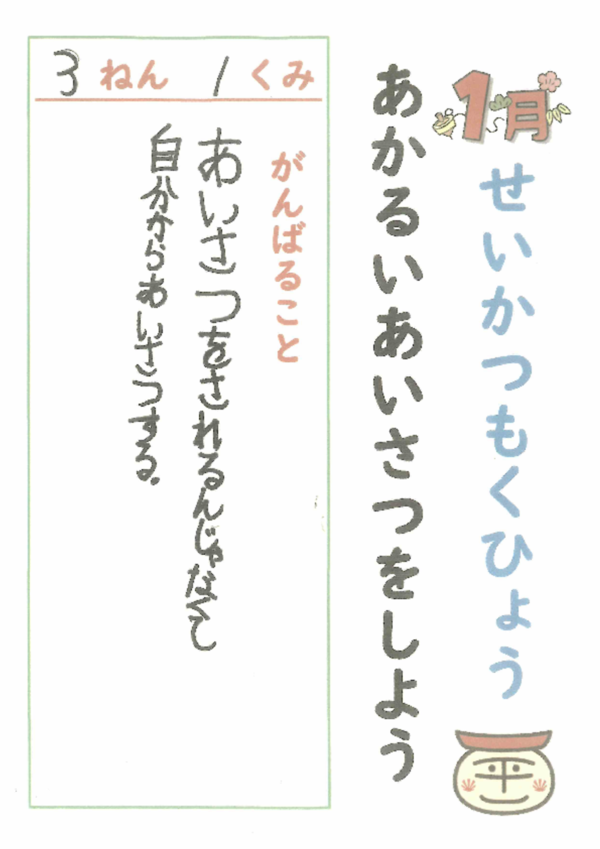 1月
せいかつもくひょう
あかるいあいさつをしよう
3ねん 1くみ
がんばること
あいさつをされるんじゃなくし
自分からあいさつする。